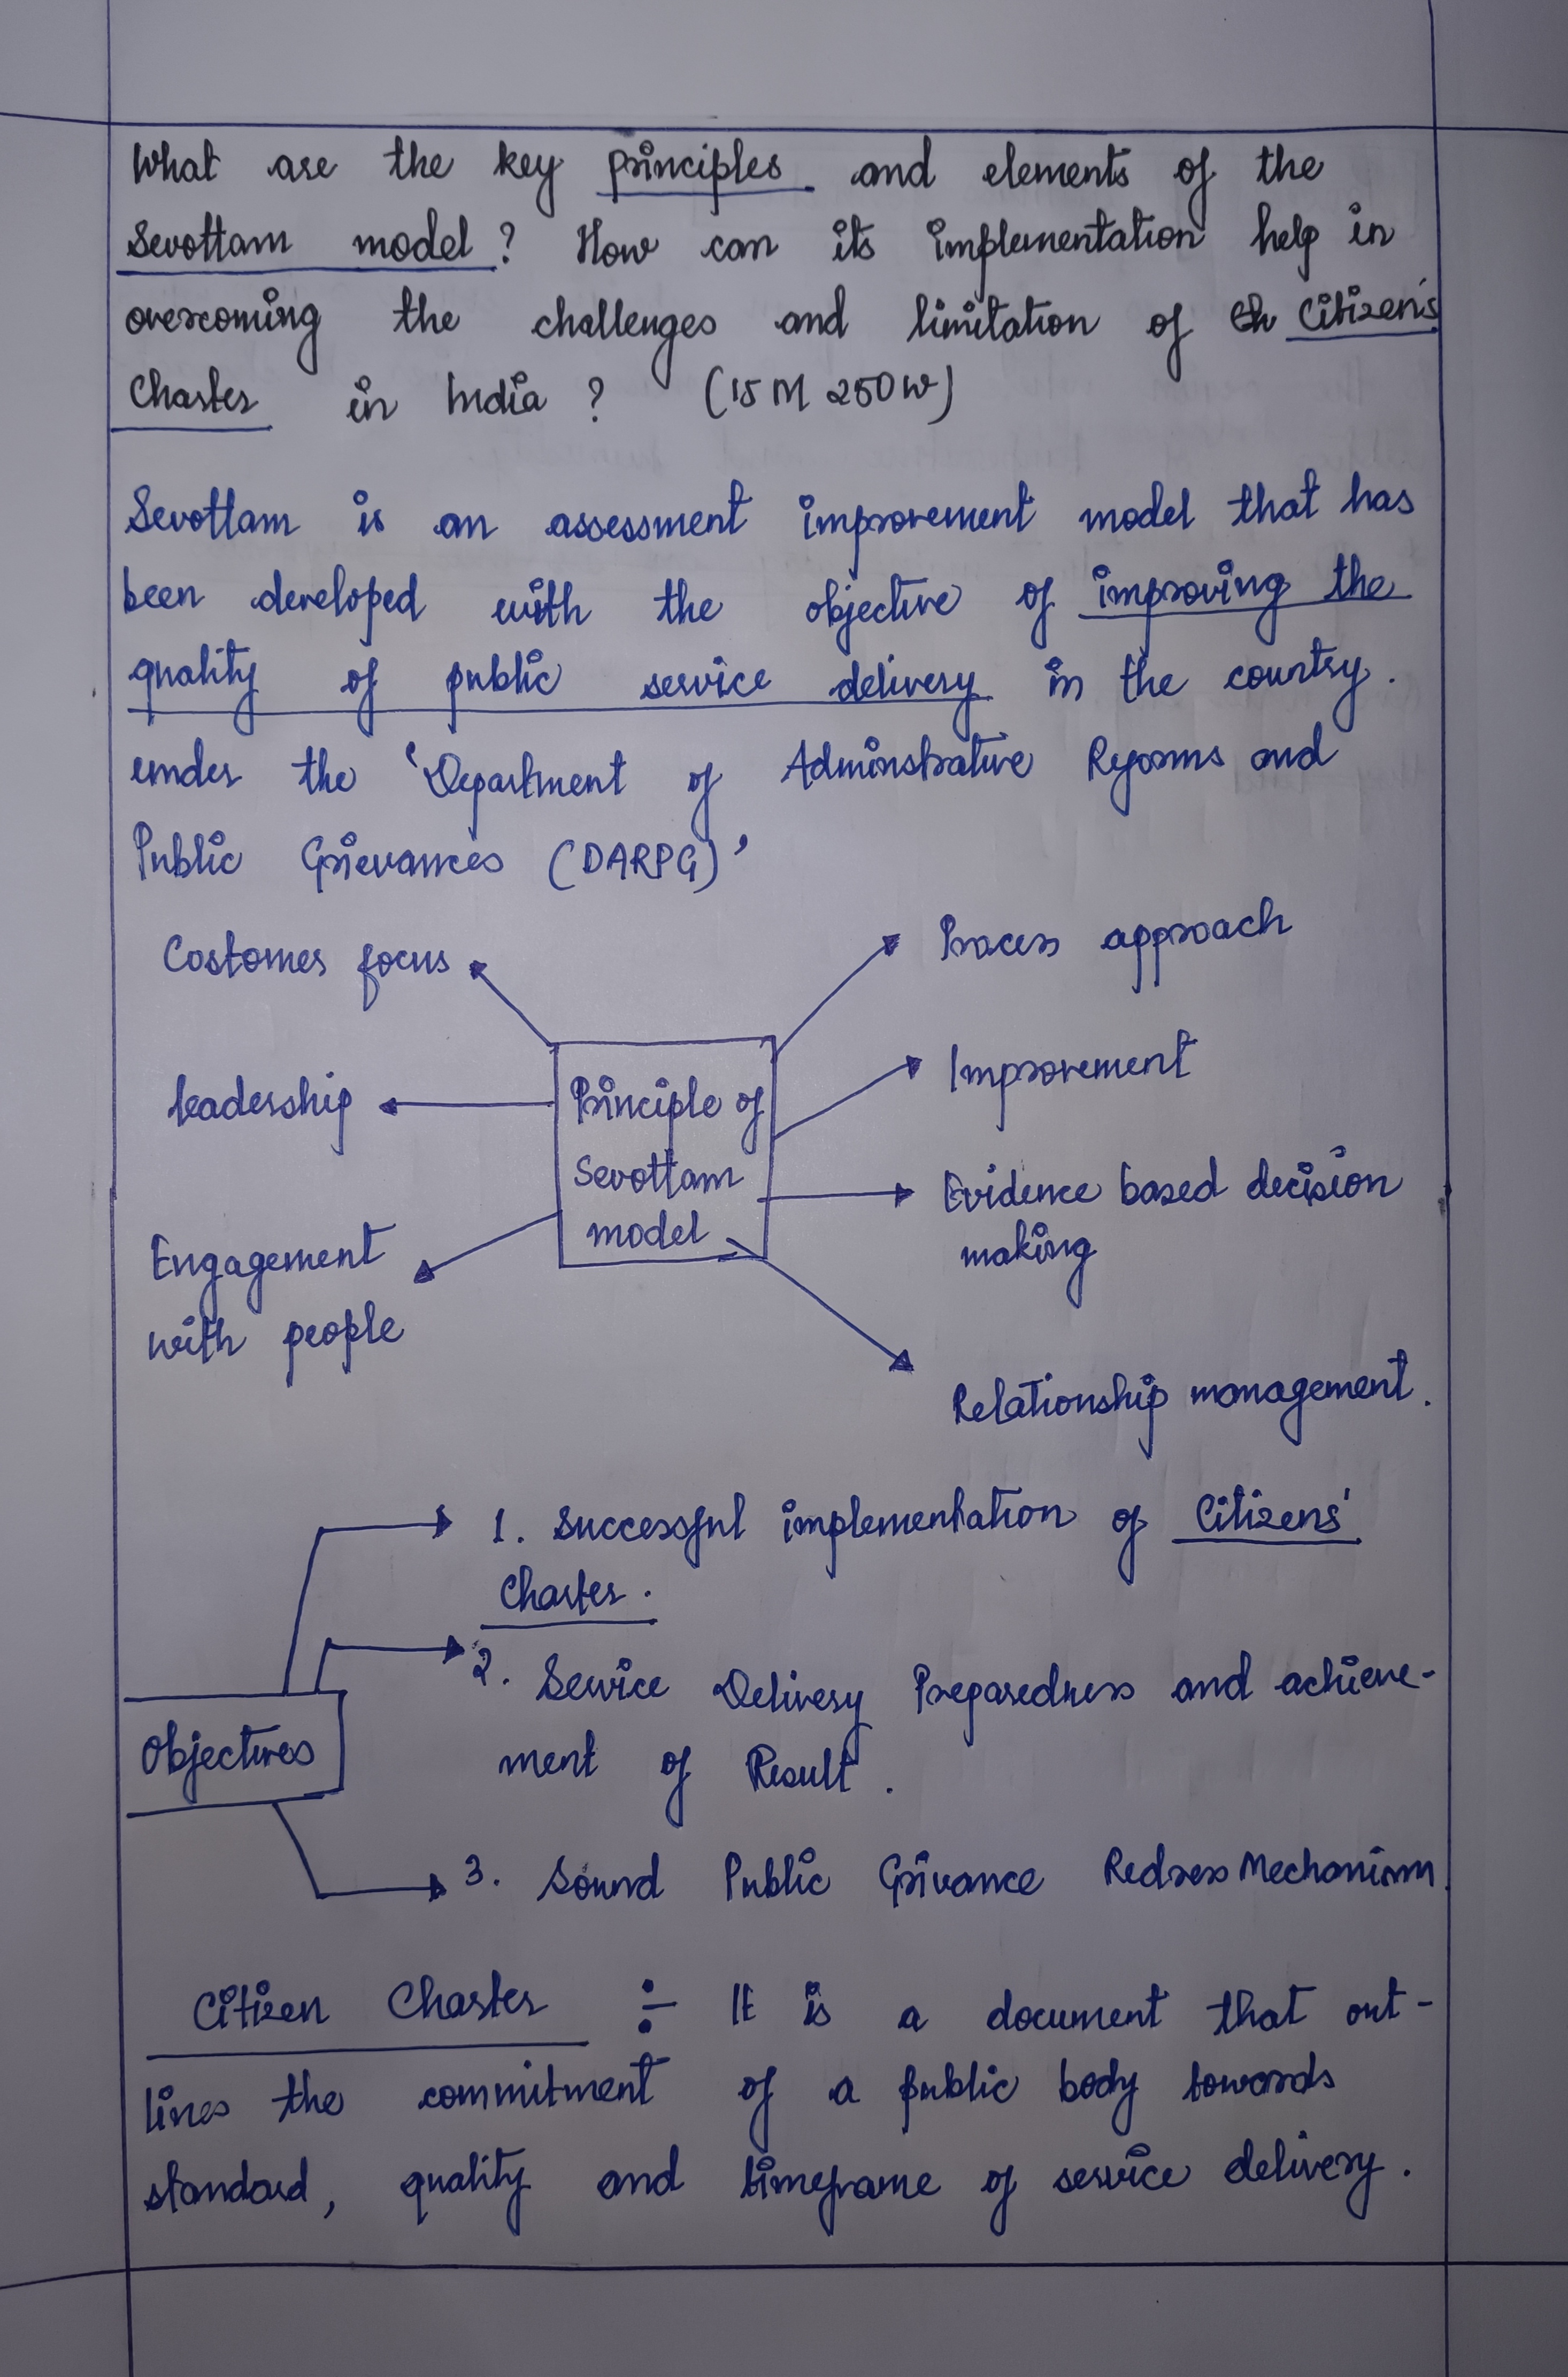 What are the key principles and elements of the
Sevottam model ? How can its implementation help in
overcoming the challenges and limitation of Citizen's
Charter in India ? (15 M 250 W)
Sevottam is an assessment improvement model that has
been developed with the objective of improving the
quality of public service delivery in the country.
under the 'Department of Adminstrative Reforms and
Public Grievances (DARPG)'
Costomer focus
Process approach
leadership
Improvement
Principle of
Sevottam
model
Evidence based decision
making
Engagement
with people
Relationship management.
1. Successful implementation of Citizens'
Charter.
2. Service Delivery Preparedness and achieve-
ment of Result.
Objectives
3. Sound Public Grivance Redress Mechanism
Citizen Charter ÷ It is a document that out-
lines the commitment of a public body towards
standard, quality and timeframe of service delivery.